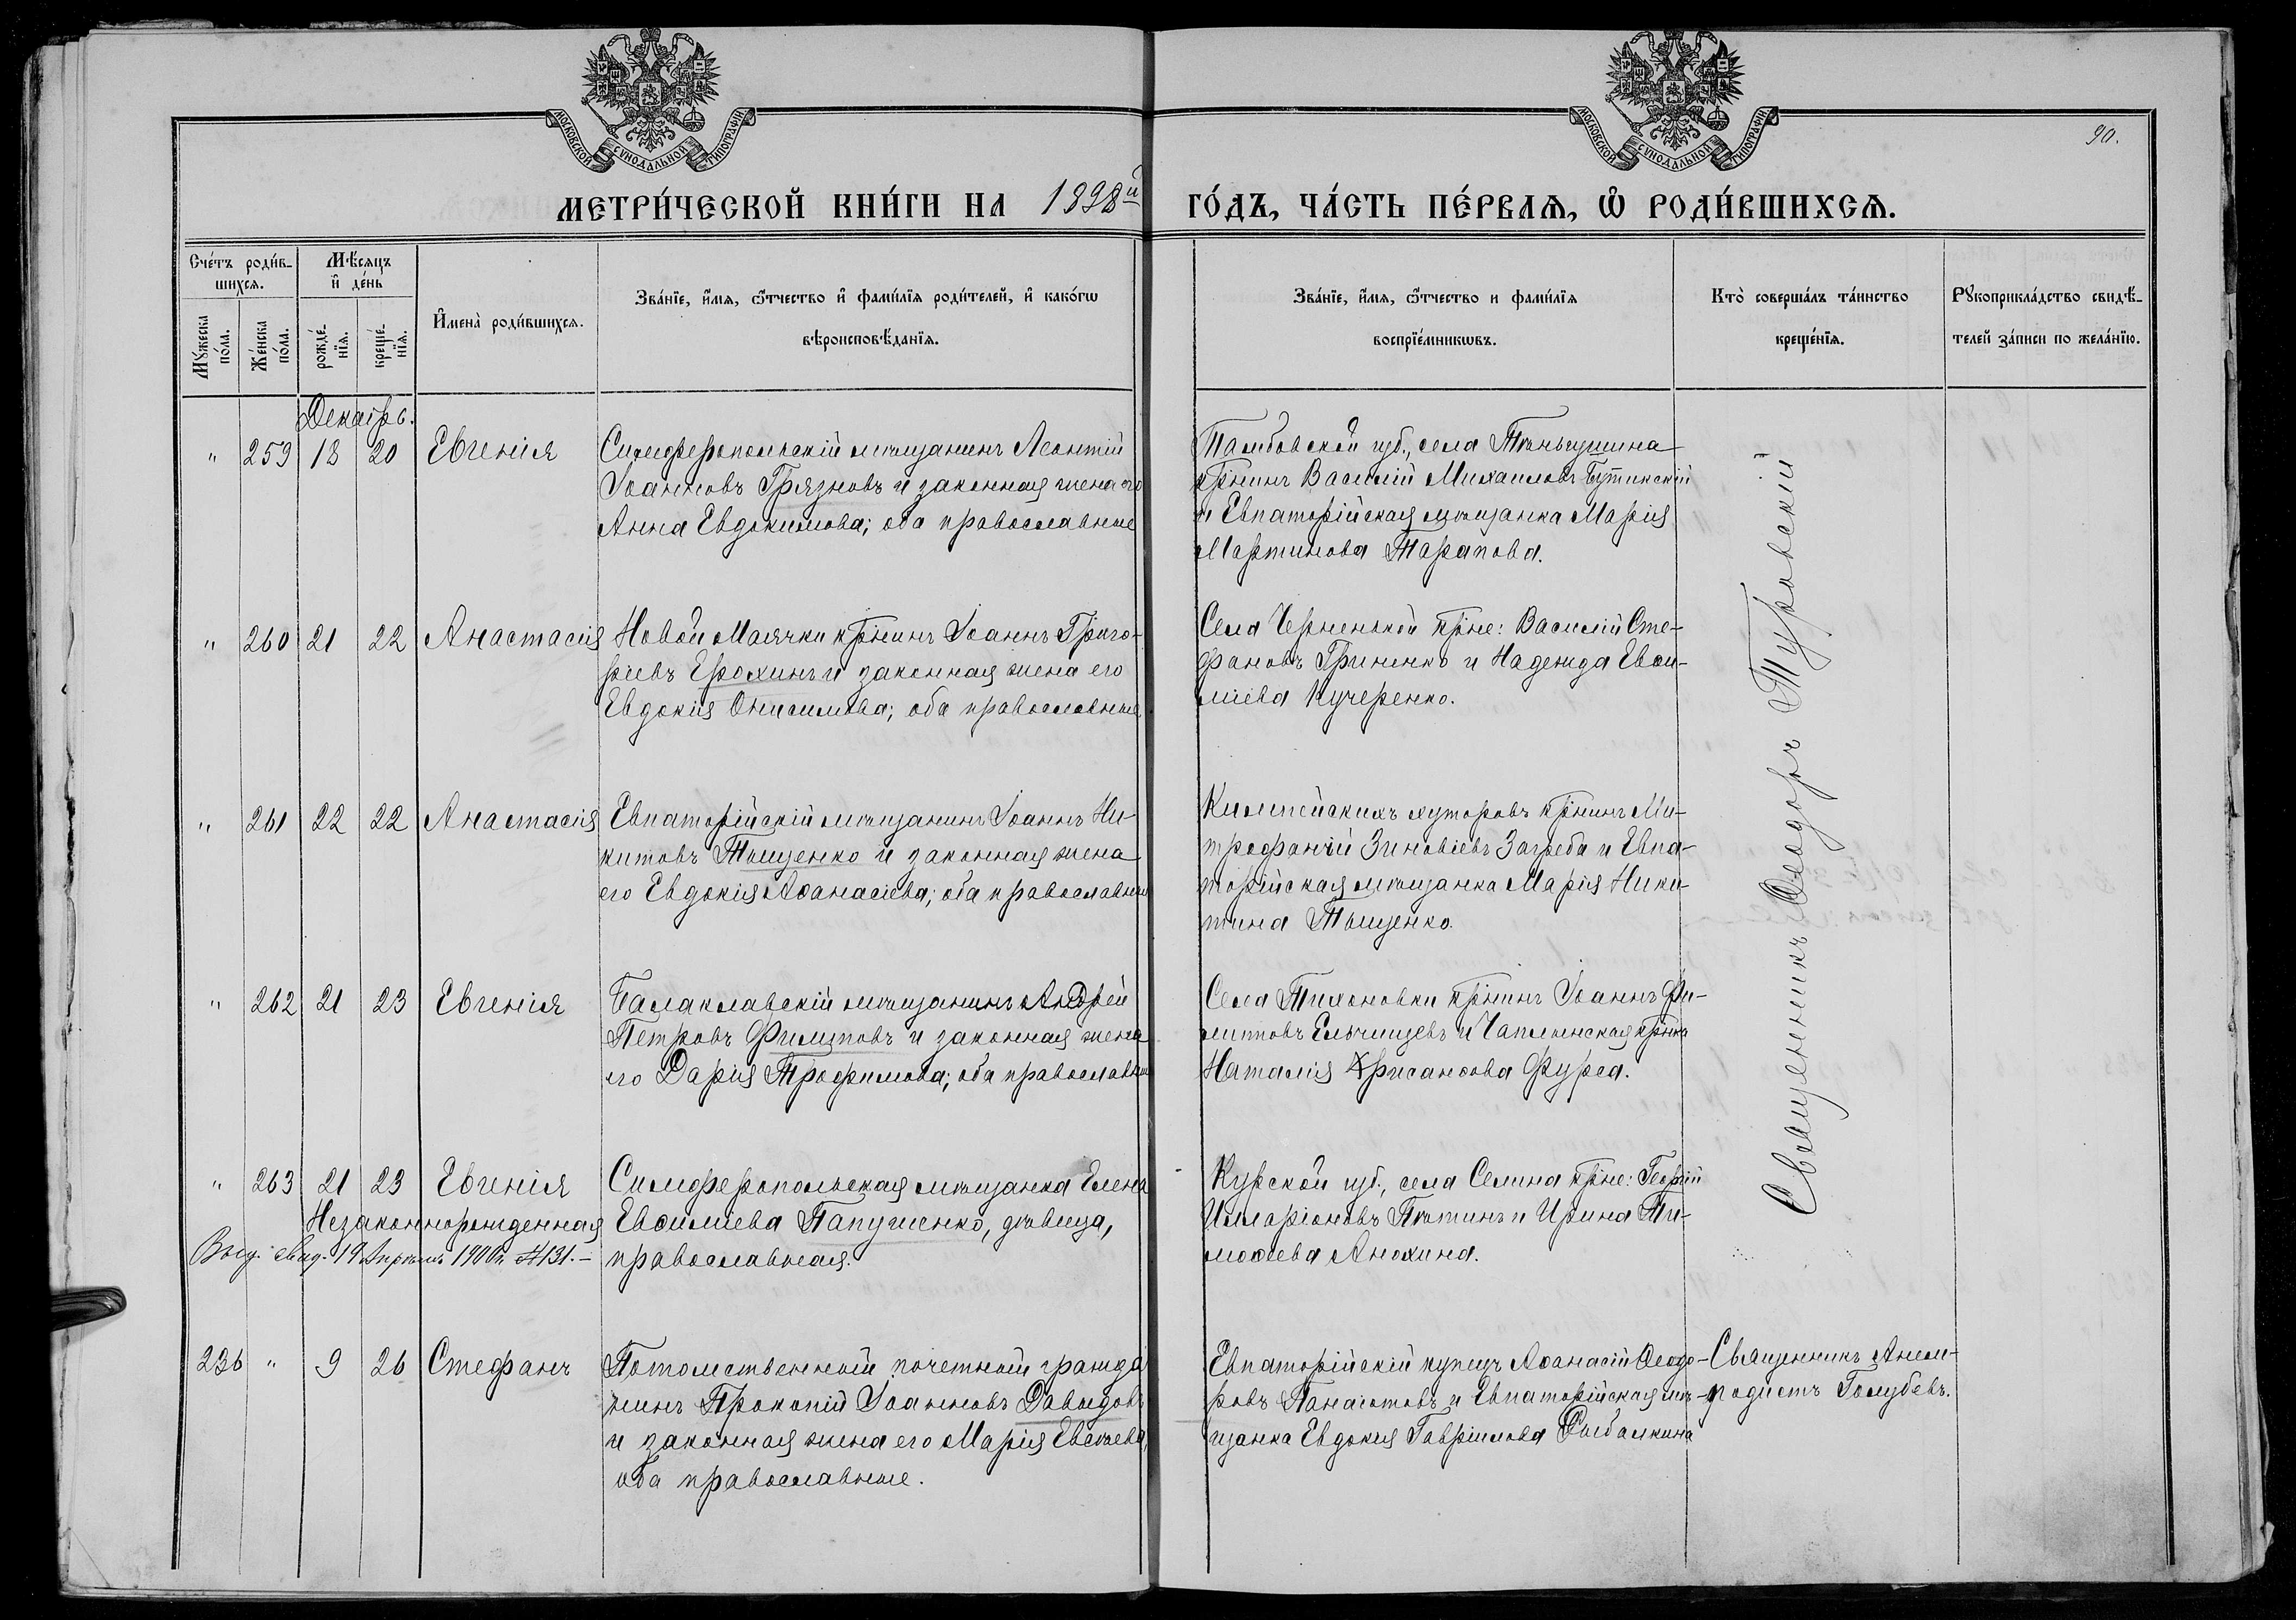 МОСКОВСКОЙ СѴНОДАЛЬНОЙ ТИПОГРАФІИ
МОСКОВСКОЙ СѴНОДАЛЬНОЙ ТИПОГРАФІИ
90.
МЕТРИ́ЧЕСКОЙ КНИ́ГИ НА 1898й ГО́ДЪ, ЧА́СТЬ ПЕ́РВАѦ, Ѡ РОДИ́ВШИХСѦ.
Сче́тъ роди́в-
шихсѧ.
Мѣ́сѧцъ
и де́нь
Мꙋ́жеска
по́ла.
Же́нска
по́ла.
рожде́-
нїѧ.
креще́-
нїѧ.
Имена̀ роди́вшихсѧ.
Зва́нїе, и́мѧ, ѻ҆́тчество и фами́лїѧ роди́телей, и како́гѡ
вѣроисповѣ́данїѧ.
Зва́нїе, и́мѧ, ѻ҆́тчество и фами́лїѧ
воспрїе́мникѡвъ.
Кто̀ соверша́лъ та́инство
креще́нїѧ.
Рꙋкоприкла́дство свидѣ́-
телей за́писи по жела́нїю.
Декабрь.
" 259 18 20 Евгенія
Симферопольскій мѣщанинъ Леонтій
Іоанновъ Грязновъ и законная жена его
Анна Евдокимова; оба православные
Тамбовской губ., села Тяньгушина
крнинъ Василій Михаиловъ Бутинскій
и Евпаторійская мѣщанка Марія
Мартинова Тарапова.
" 260 21 22 Анастасія
Новой Маячки крнинъ Іоаннъ Григо-
ріевъ Ерохинъ и законная жена его
Евдокія Онисимова; оба православные.
Села Черненькой крне: Василій Сте-
фановъ Гриненко и Надежда Евѳи-
міева Кучеренко.
" 261 22 22 Анастасія
Евпаторійскій мѣщанинъ Іоаннъ Ни-
китовъ Тыщенко и законная жена
его Евдокія Аѳанасіева; оба православные
хуторовъ крнинъ Ми-
трофаній Зиновіевъ Загреба и Евпа-
торійская мѣщанка Марія Ники-
тина Тыщенко.
" 262 21 23 Евгенія
Балаклавскій мѣщанинъ Андрей
Петровъ Филиповъ и законная жена
его Дарія Трофимова; оба православные
Села Тихоновки крнинъ Іоаннъ Фи-
липповъ Ельчищевъ и Чаплынская крнка
Наталія Хрисанѳова Фурса.
" 263 21 23 Евгенія
Незаконнорожденная
Выд. свид. 19 Апрѣля 1900 г. № 131.-
Симферопольская мѣщанка Елена
Евѳиміева Папушенко, дѣвица,
православная.
Курской губ., села Селина крне: Георгій
Илларіоновъ Пятинъ и Ирина Ти-
моѳеева Анохина.
Священникъ Ѳеодоръ Туровскій
236 " 9 26 Стефанъ
Потомственный почетный гражда-
нинъ Прокопій Іоанновъ Давыдовъ
и законная жена его Марія Евсѣева,
оба православные.
Евпаторійскій купецъ Аѳанасій Ѳеодо-
ровъ Панаіотовъ и Евпаторійская мѣ-
щанка Евдокія Гавріилова Рыбалкина
Священникъ Анем-
подистъ Голубевъ.